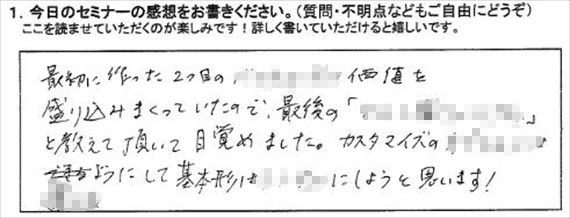 1. 今日のセミナーの感想をお書きください。(質問・不明点などもご自由にどうぞ)
ここを読ませていただくのが楽しみです!詳しく書いていただけると嬉しいです。
最初に作った2つ目の 価値を
盛り込みまくっていたので、最後の「 」
と教えて頂いて目覚めました。カスタマイズの
ようにして基本形は にしようと思います!